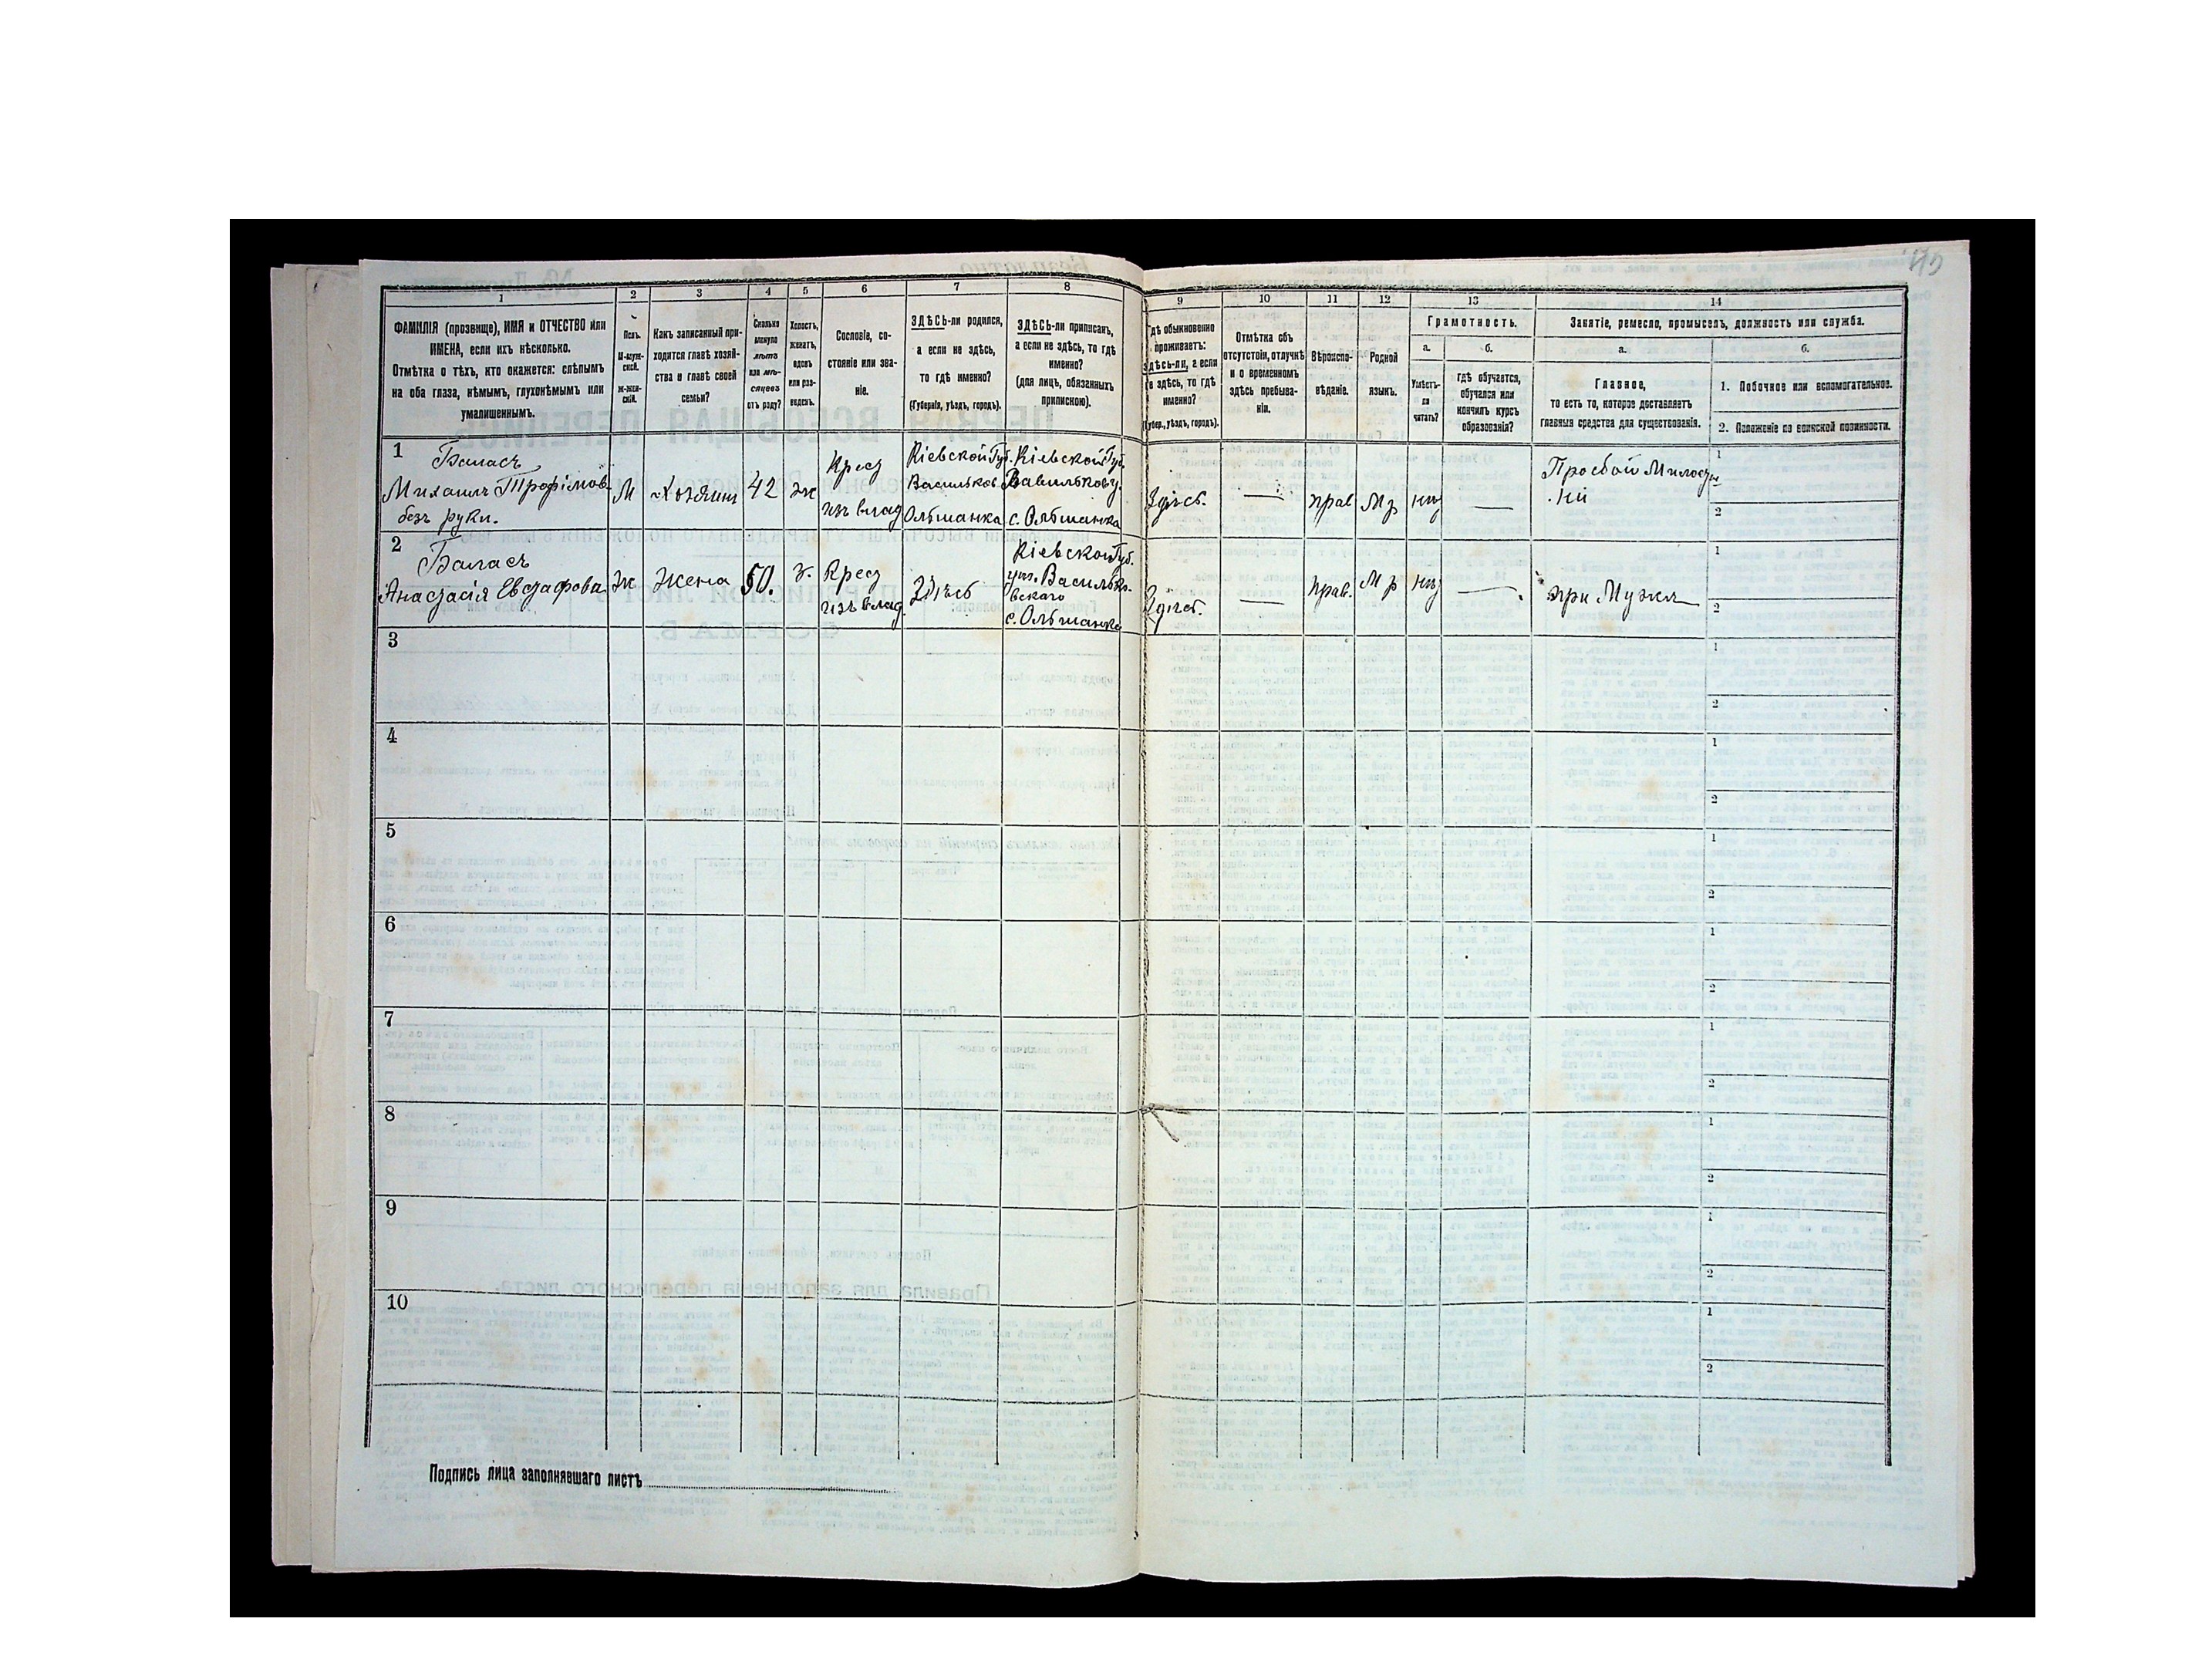 45
1
2
3
4
5
6
7
8
ФАМИЛІЯ (прозвище), ИМЯ и ОТЧЕСТВО или
ИМЕНА, если ихъ нѣсколько.
Отмѣтка о тѣхъ, кто окажется: слѣпымъ
на оба глаза, нѣмымъ, глухонѣмымъ или
умалишеннымъ.
Полъ.
М-муж-
ской.
Ж-жен-
скій.
Какъ записанный при-
ходится главѣ хозяй-
ства и главѣ своей
семьи?
Сколько
минуло
лѣтъ
или мѣ-
сяцевъ
отъ роду?
Холостъ,
женатъ,
вдовъ
или раз-
веденъ.
Сословіе, со-
стояніе или зва-
ніе.
ЗДѢСЬ-ли родился,
а если не здѣсь,
то гдѣ именно?
(Губернія, уѣздъ, городъ).
ЗДѢСЬ-ли приписанъ,
а если не здѣсь, то гдѣ
именно?
(для лицъ, обязанныхъ
припискою).
9
10
11
12
13
14
Гдѣ обыкновенно
проживаетъ:
здѣсь-ли, а если
не здѣсь, то гдѣ
именно?
(Губер., уѣздъ, городъ).
Отмѣтка объ
отсутствіи, отлучкѣ
и о временномъ
здѣсь пребыва-
ніи.
Вѣроиспо-
вѣданіе.
Родной
языкъ.
Грамотность.
а.
б.
Умѣетъ-
ли
читать?
гдѣ обучается,
обучался или
кончилъ курсъ
образованія?
Занятіе, ремесло, промыселъ, должность или служба.
а.
б.
Главное,
то есть то, которое доставляетъ
главныя средства для существованія.
1. Побочное или вспомогательное.
2. Положеніе по воинской повинности.
1
Баласъ
Михаилъ Трофімов.
безъ руки.
М
Хозяин
42
ж
Крест
изъ влад
Кіевской Губ.
Васильков.
Ольшанка
Кіевской Губ.
Васильков у.
с. Ольшанка
Здѣсь.
—
прав
Мр
нѣт
—
1
2
2
Баласъ
Анастасія Евстафова
Ж
Жена
50.
з.
Крест
изъ влад.
Здѣсь
Кіевской Губ.
уѣз. Василько-
вского
с. Ольшанка
Здѣсь.
—
прав.
Мр
нѣт
—
при Мужѣ
1
2
3
1
2
4
1
2
5
1
2
6
1
2
7
1
2
8
1
2
9
1
2
10
1
2
Подпись лица заполнявшаго листъ